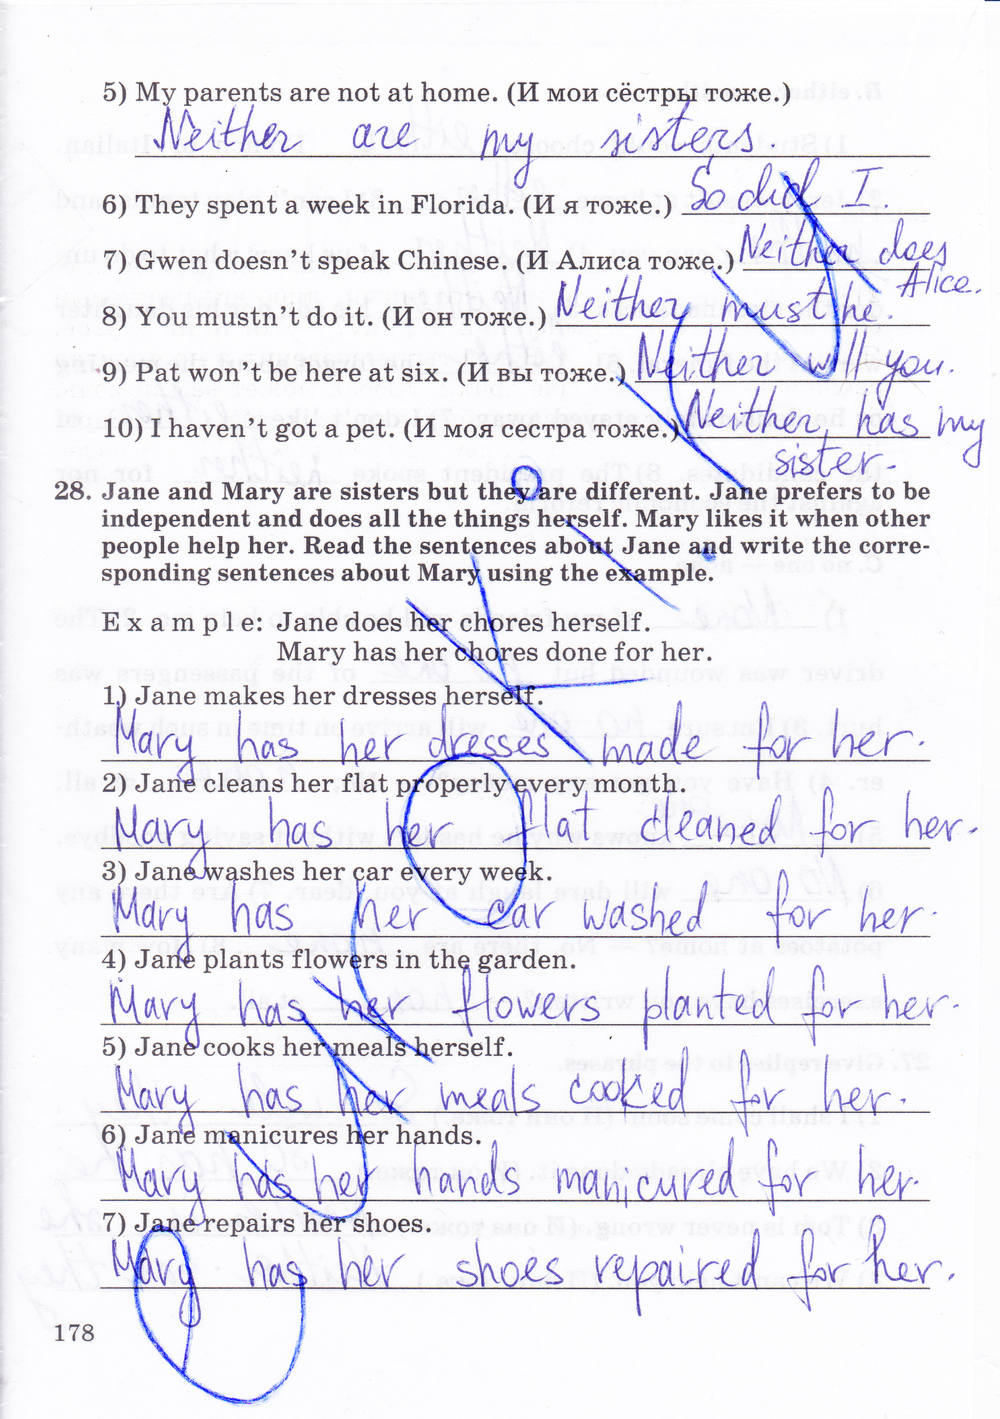 5) My parents are not at home. (И мои сёстры тоже.)
Neither are my sisters.
6) They spent a week in Florida. (И я тоже.) So did I.
7) Gwen doesn't speak Chinese. (И Алиса тоже.) Neither does
Alice.
8) You mustn't do it. (И он тоже.) Neither must he.
9) Pat won't be here at six. (И вы тоже.) Neither will you.
10) I haven't got a pet. (И моя сестра тоже.) Neither has my
sister.
28. Jane and Mary are sisters but they are different. Jane prefers to be
independent and does all the things herself. Mary likes it when other
people help her. Read the sentences about Jane and write the corre-
sponding sentences about Mary using the example.
Example: Jane does her chores herself.
Mary has her chores done for her.
1) Jane makes her dresses herself.
Mary has her dresses made for her.
2) Jane cleans her flat properly every month.
Mary has her flat cleaned for her.
3) Jane washes her car every week.
Mary has her car washed for her.
4) Jane plants flowers in the garden.
Mary has her flowers planted for her.
5) Jane cooks her meals herself.
Mary has her meals cooked for her.
6) Jane manicures her hands.
Mary has her hands manicured for her.
7) Jane repairs her shoes.
Mary has her shoes repaired for her.
178